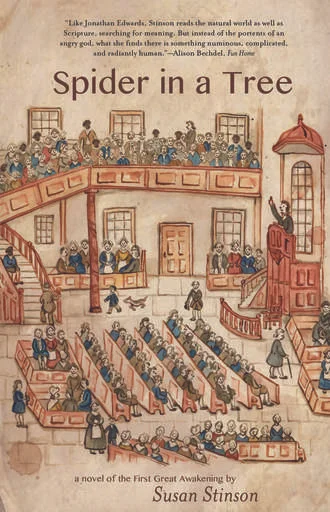 "Like Jonathan Edwards, Stinson reads the natural world as well as
Scripture, searching for meaning. But instead of the portents of an
angry god, what she finds there is something numinous, complicated,
and radiantly human."—Alison Bechdel, Fun Home
Spider in a Tree
a novel of the First Great Awakening by
Susan Stinson